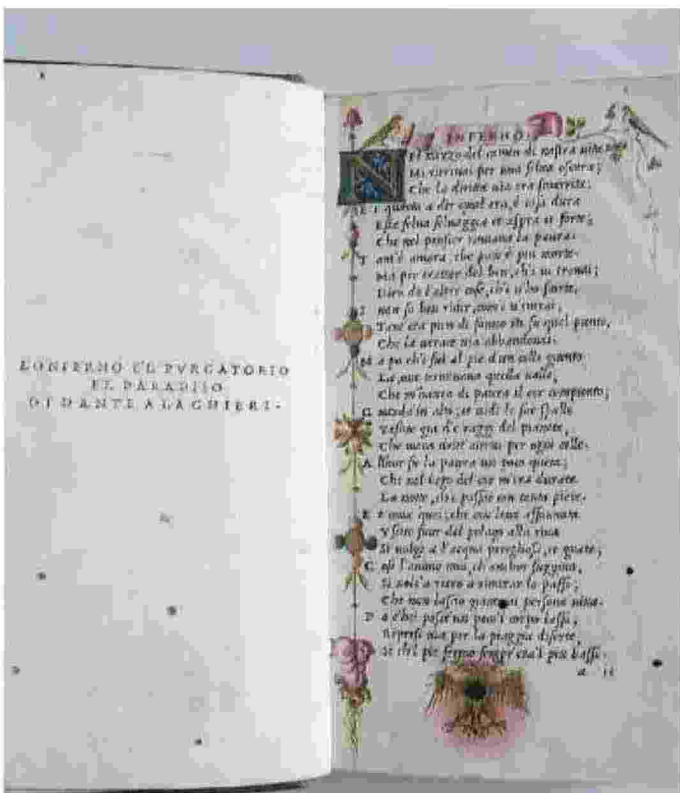 LO'NFERNO E'L PVRGATORIO
E'L PARADISO
DI DANTE ALAGHIERI.
INFERNO.
NEl mezzo del camin di nostra vita
Mi ritrovai per una selva oscura;
Che la diritta via era smarrita:
E t quanto a dir qual era, è cosa dura
Esta selva selvaggia et aspra et forte;
Che nel pensier rinuova la paura.
T ant'è amara, che poco è piu morte.
Ma per trattar del ben, ch'i vi trovai;
Diro de l'altre cose, ch'i v'ho scorte.
I non so ben ridir, com'i v'entrai;
Tant'era pien di sonno in su quel punto,
Che la verace via abbandonai.
M a po ch'i fui al pie d'un colle giunto
La, ove terminava quella valle,
Che m'havea di paura il cor compunto;
G uardai in alto, et vidi le sue spalle
Vestite gia de raggi del pianeta,
Che mena dritt'altrui per ogni calle.
A llhor fu la paura un poco queta;
Che nel lago del cor m'era durata
La notte, ch'i passai con tanta pieta.
E t come quei, che con lena affannata
Vscito fuor del pelago alla riva
Si volge a l'acqua perigliosa, et guata;
C osi l'animo mio, ch'anchor fuggiva,
Si vols'a retro a rimirar lo passo;
Che non lascio giamai persona viva.
P o c'hei posat'un poco'l corpo lasso,
Ripresi via per la piaggia diserta,
Si che'l pie fermo sempr'era'l piu basso.
a ii